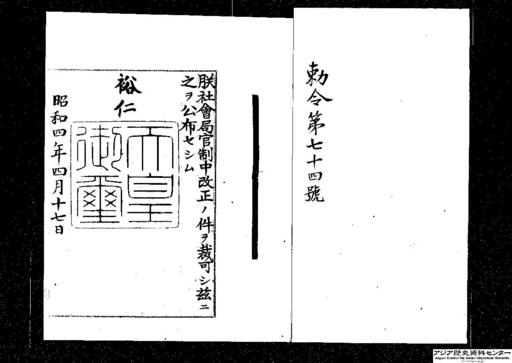 勅令第七十四號
朕社會局官制中改正ノ件ヲ裁可シ茲ニ
之ヲ公布セシム
裕仁
天皇
御璽
昭和四年四月十七日
アジア歴史資料センター
Japan Center for Asian Historical Records